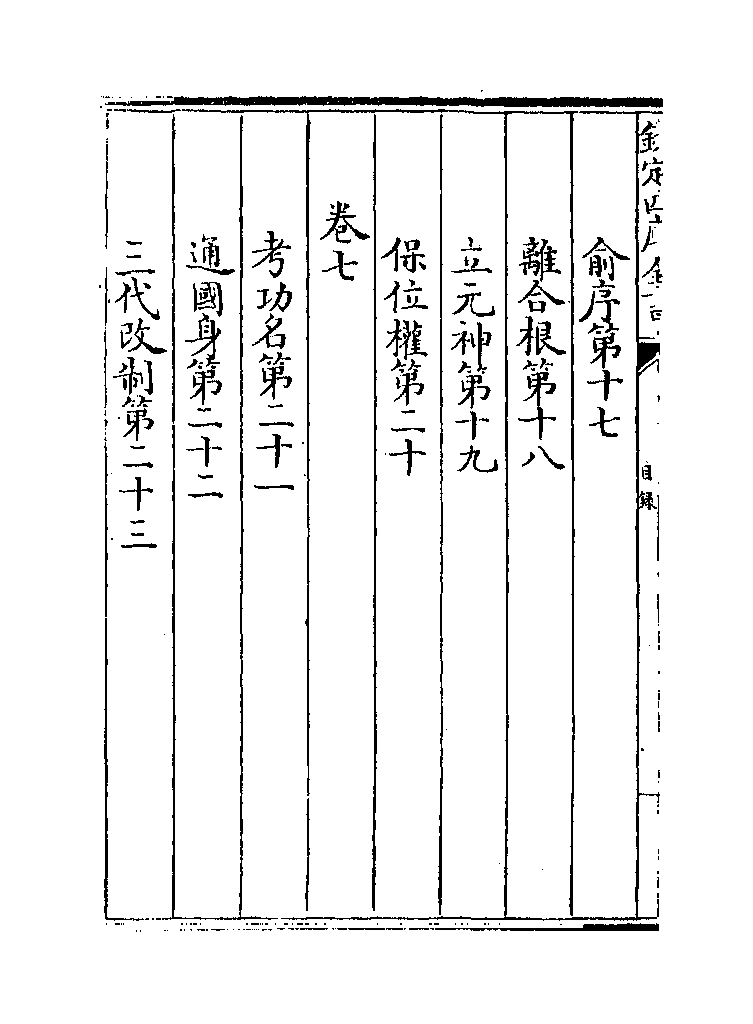 俞序第十七
離合根第十八
立元神第十九
保位權第二十
卷七
考功名第二十一
通國身第二十二
三代改制第二十三
目録